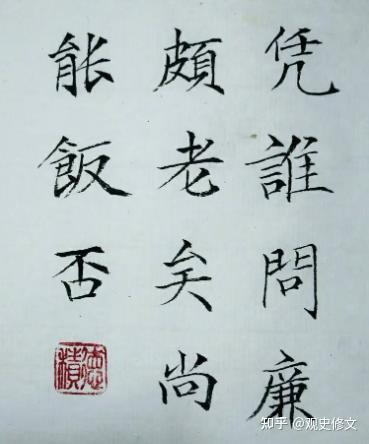 凭誰問廉
頗老矣尚
能飯否
德積
知乎 @观史修文